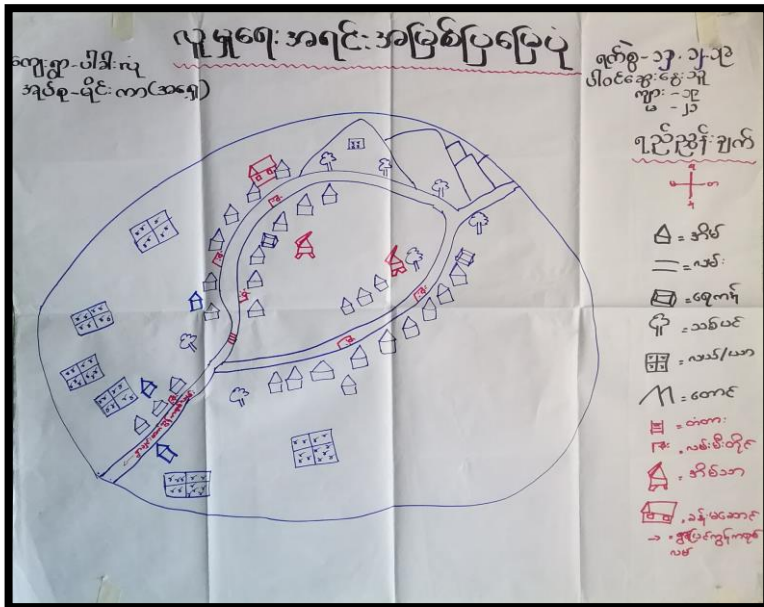 လူမှုရေးအရင်းအမြစ်ပြမြေပုံ
ကျေးရွာ-ပါဒါးလုံ
အုပ်စု-မိုင်းကာ(အရှေ့)
ပါဝင်ဆွေးနွေးသူ
ကျား -၁၉
မ -၂၁
ရည်ညွှန်းချက်
= အိမ်
= လမ်း
= ရေကန်
= သစ်ပင်
= လယ်/ယာ
= တောင်
= တံတား
= လမ်းမီးတိုင်
= အိမ်သာ
= ခန်းမဆောင်
လမ်း